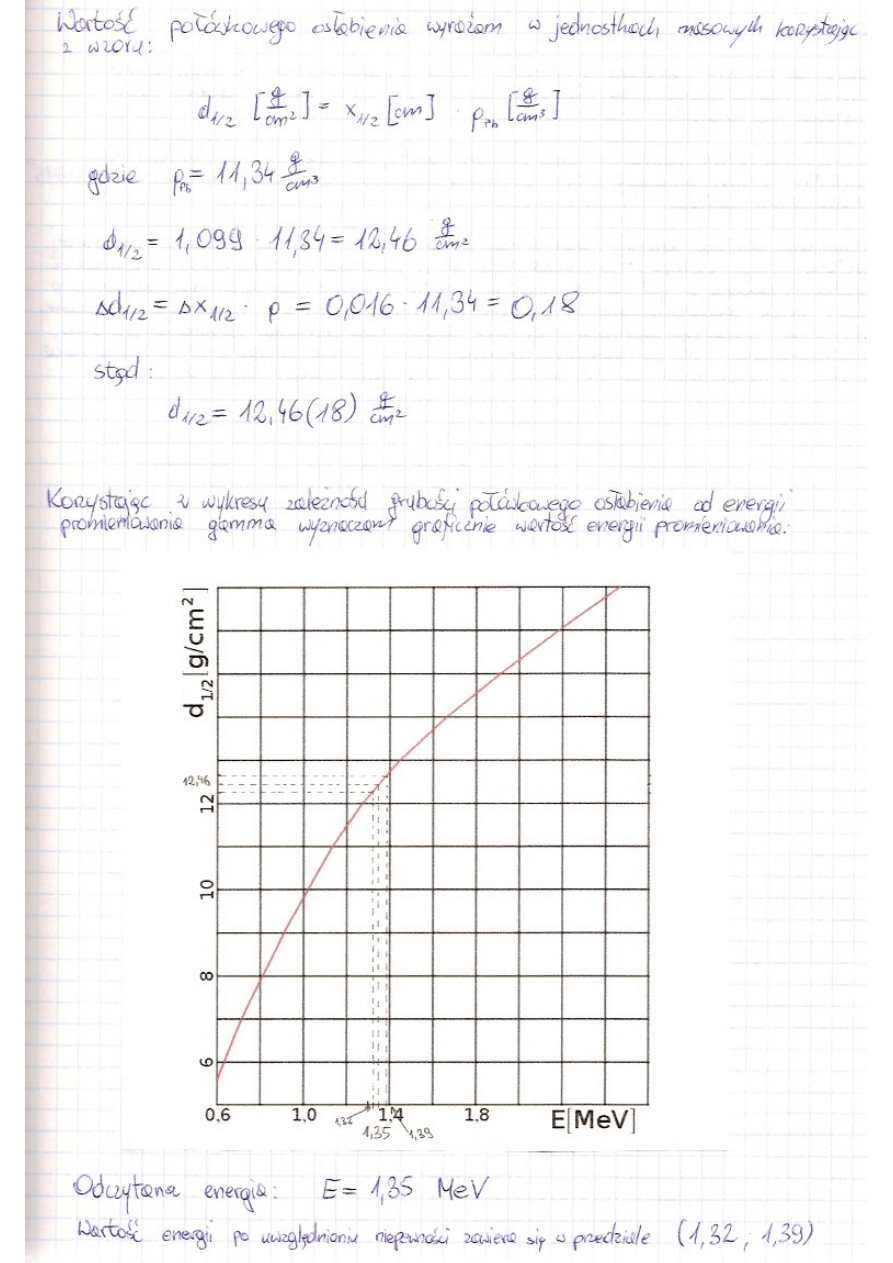 Wartość połówkowego osłabienia wyrażam w jednostkach masowych korzystając
z wzoru:
d₁/₂ [g/cm²] = x₁/₂ [cm] · ρPb [g/cm³]
gdzie ρPb = 11,34 g/cm³
d₁/₂ = 1,099 · 11,34 = 12,46 g/cm²
Δd₁/₂ = Δx₁/₂ · ρ = 0,016 · 11,34 = 0,18
stąd:
d₁/₂ = 12,46(18) g/cm²
Korzystając z wykresu zależność grubości połówkowego osłabienia od energii
promieniowania gamma wyznaczam graficznie wartość energii promieniowania:
d₁/₂ [g/cm²]
12,46
12
10
8
6
0,6 1,0 1,32 1,4 1,8 E[MeV]
1,35 1,39
Odczytana energia: E = 1,35 MeV
Wartość energii po uwzględnieniu niepewności zawiera się w przedziale (1,32 ; 1,39)